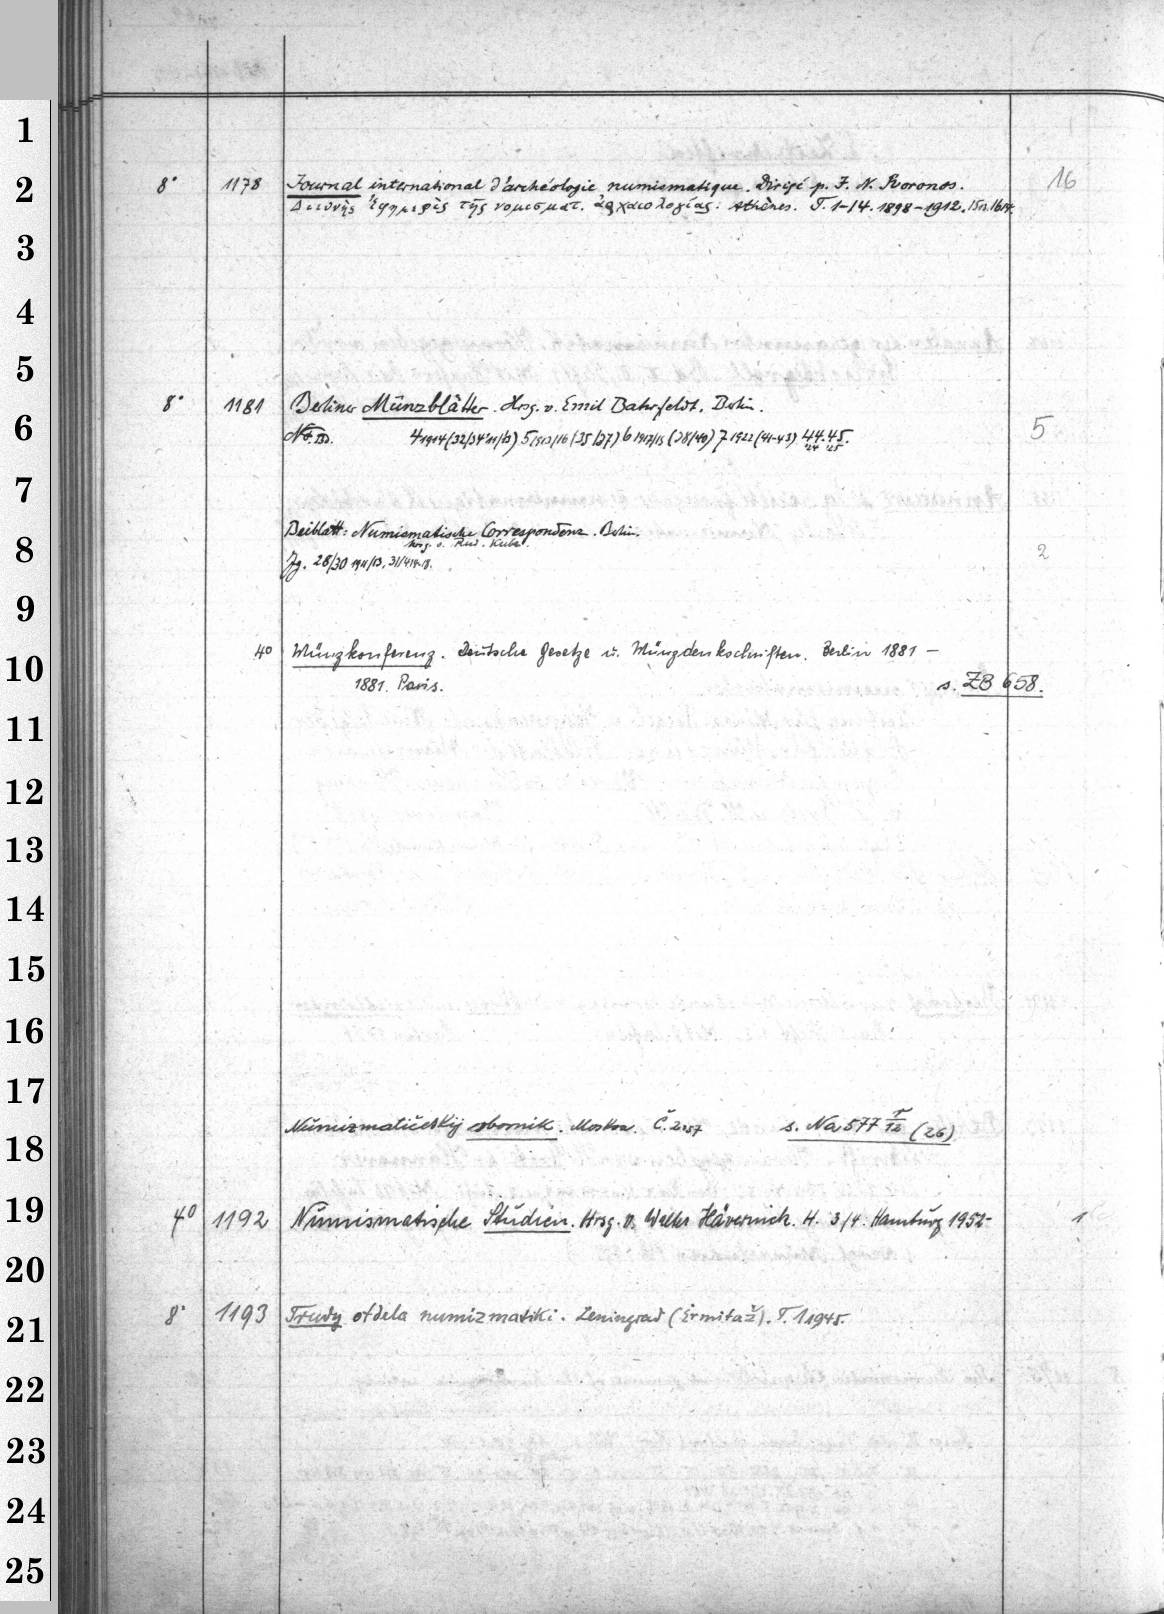 1
2 8° 1178 Journal international d'archéologie numismatique. Dirigé p. J. N. Svoronos. 16
Διεθνὴς Ἐφημερὶς τῆς νομισματ. ἀρχαιολογίας. Athènes. T. 1-14. 1898-1912. 15 1913. 16 1914.
3
4
5
8° 1181 Berliner Münzblätter. Hrsg. v. Emil Bahrfeldt. Berlin.
6 N.F. Bd. 4 1914 (32/34 '11/13) 5 1913/16 (35/37) 6 1917/19 (38/40) 7 1922 (41-43) 44. 45. 5
'24 '25
7
Beiblatt: Numismatische Correspondenz. Berlin.
8 Hrsg. v. Rud. Kube. 2
Jg. 28/30 1911/13, 31/4 14-18.
9
4° Münzkonferenz. Deutsche Gesetze u. Münzdenkschriften. Berlin 1881 —
10 1881. Paris. s. ZB 658.
11
12
13
14
15
16
17
Numizmatičeskij sbornik. Moskva. s. Na 577 (26)
18
19 4° 1192 Numismatische Studien. Hrsg. v. Walter Hävernick. H. 3/4. Hamburg 1952- 1
20
21 8° 1193 Trudy otdela numizmatiki. Leningrad (Ermitaž). T. 1 1945.
22
23
24
25